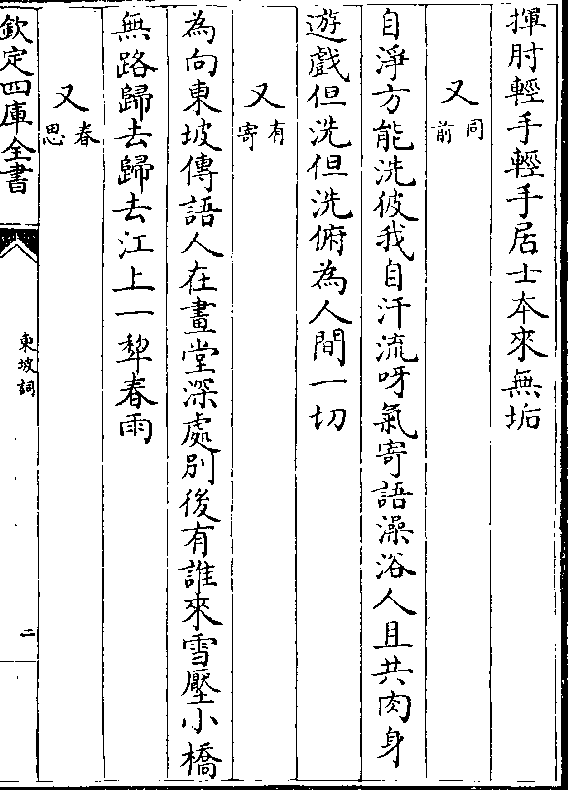 揮肘輕手輕手居士本來無垢
又同前
自淨方能洗彼我自汗流呀氣寄語澡浴人且共肉身
遊戲但洗但洗俯為人間一切
又有寄
為向東坡傳語人在畫堂深處別後有誰來雪壓小橋
無路歸去歸去江上一犂春雨
又春思
欽定四庫全書
東坡詞
二